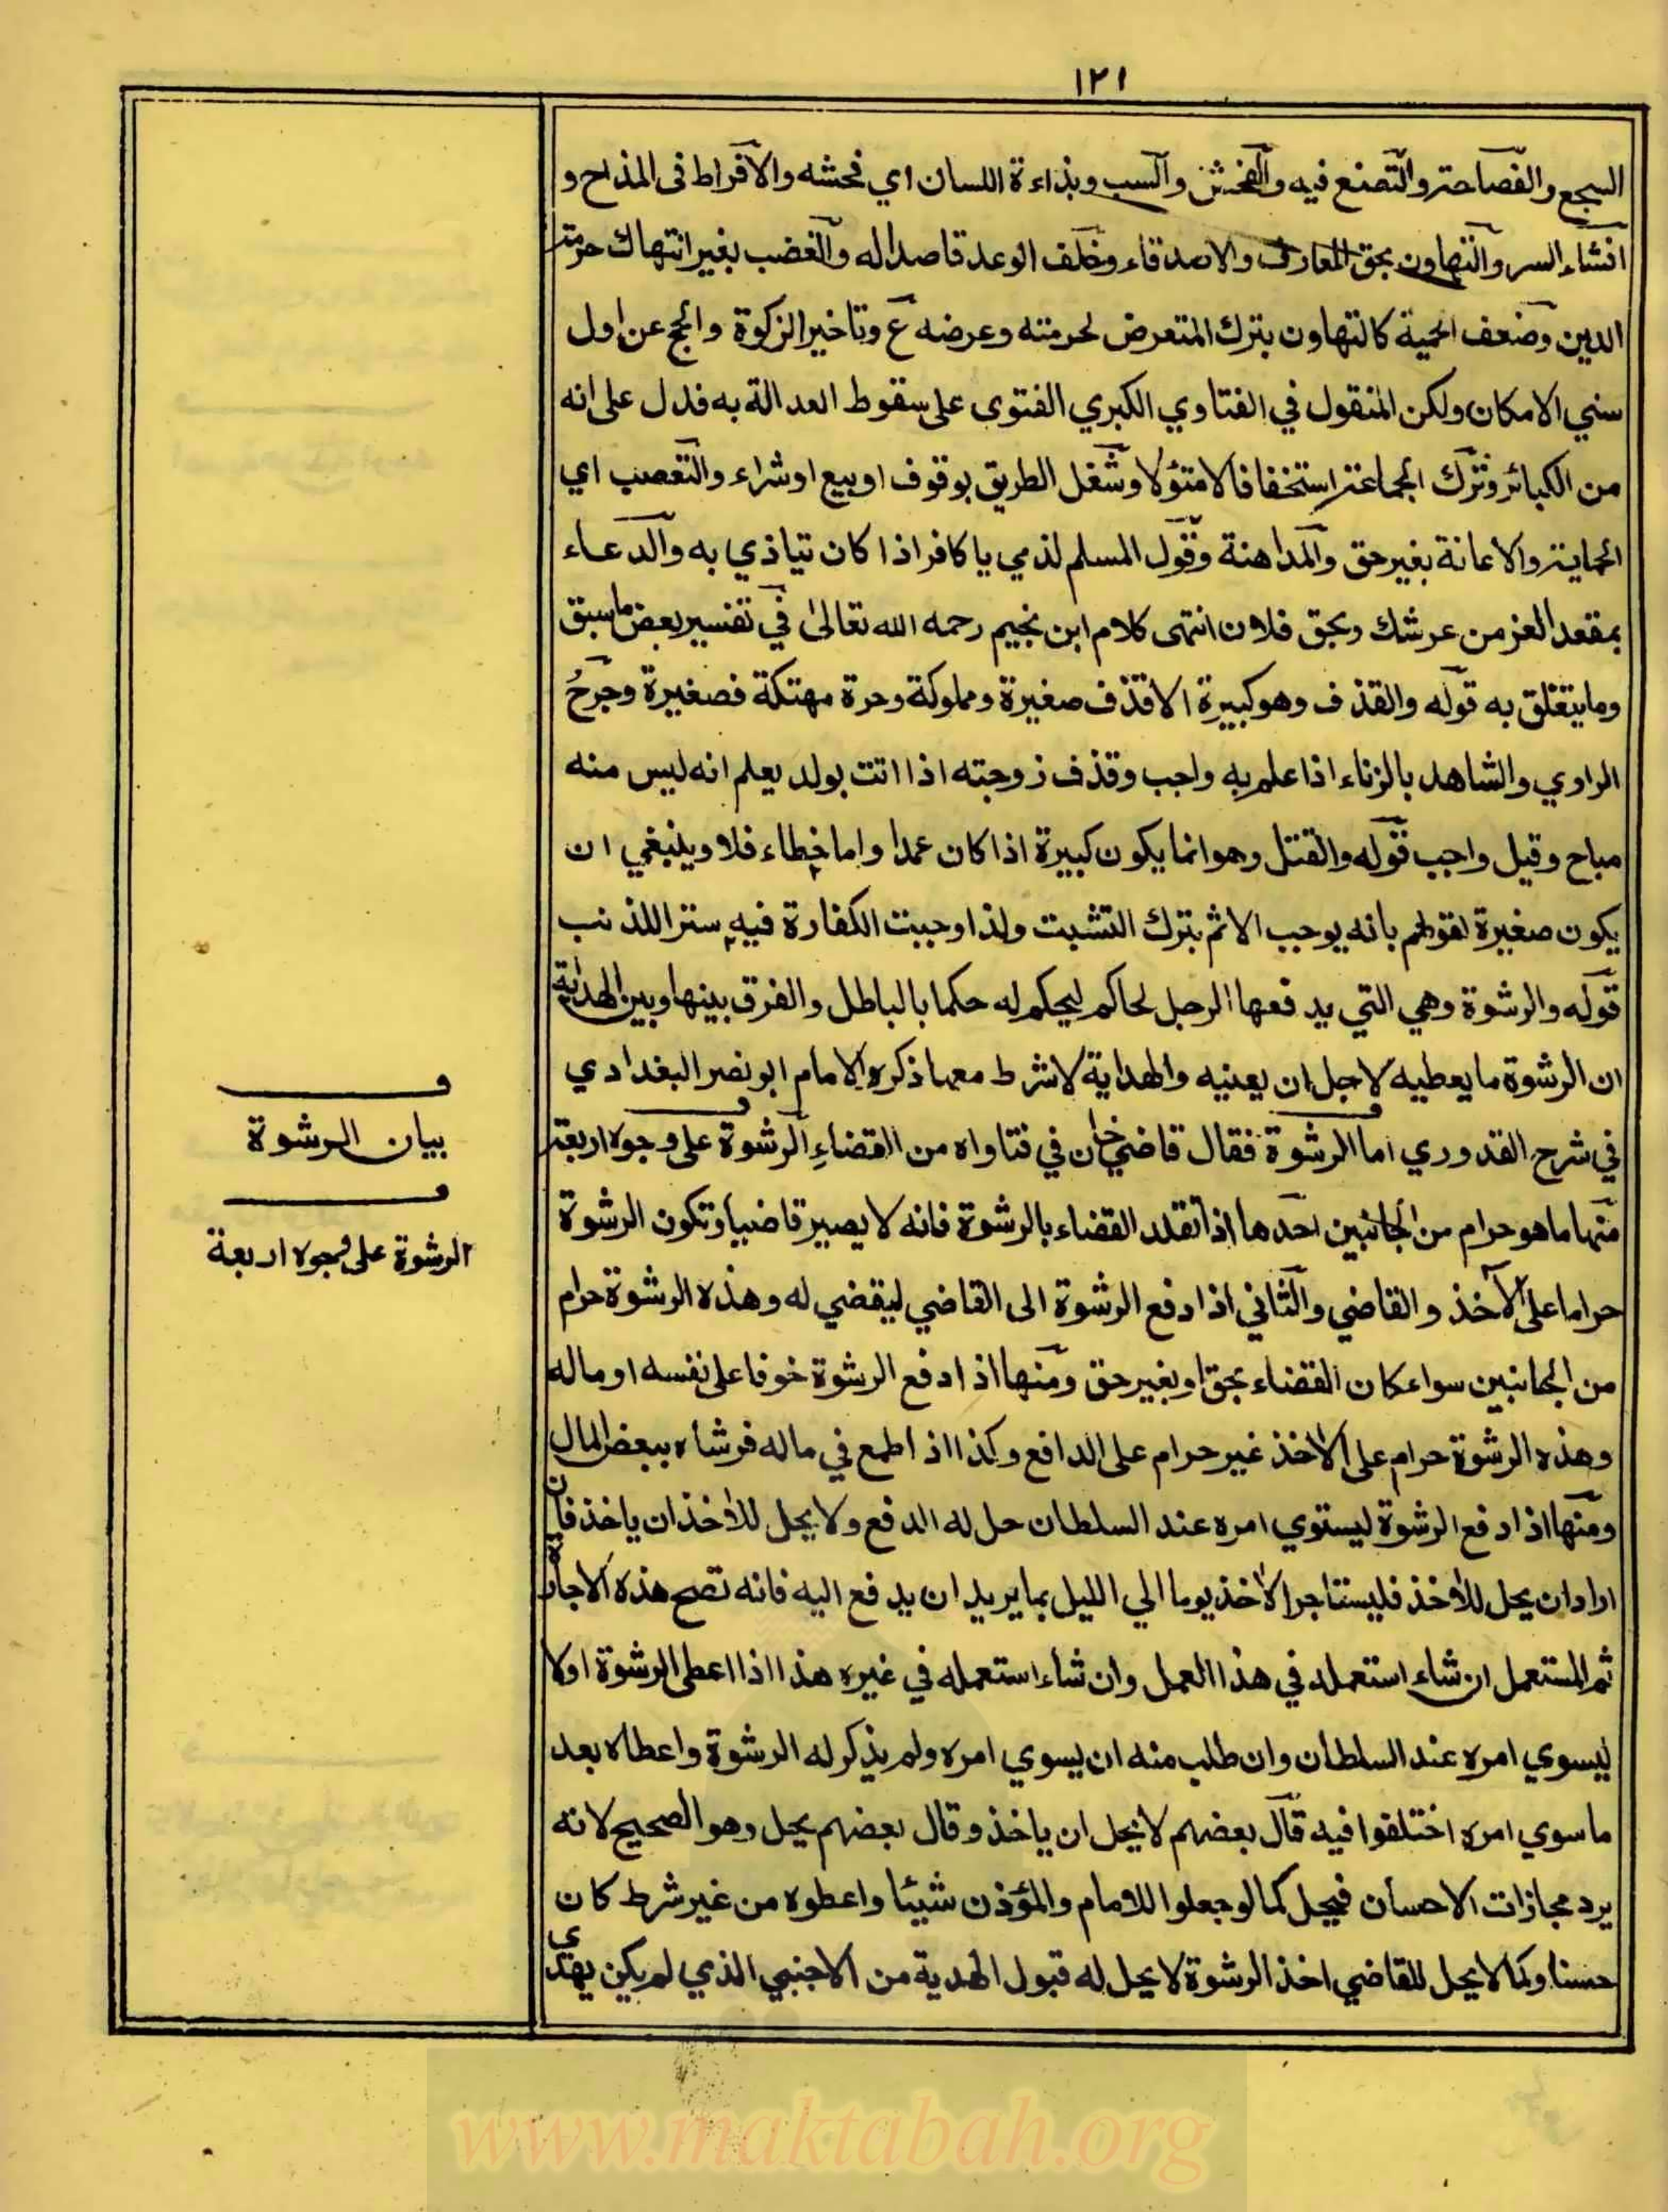 ١٢١
السجع والفصاحة والتصنع فيه والفحش والسب وبذاءة اللسان اي فحشه والافراط فى المذاح و
افشاء السر والتهاون بحق المعارف والاصدقاء وخلف الوعد قاصدا له والغضب بغير انتهاك حرمة
الدين وضعف الحمية كالتهاون بترك المتعرض لحرمته وعرضه ع وتاخير الزكوة والحج عن اول
سني الامكان ولكن المنقول في الفتاوي الكبري الفتوى على سقوط العدالة به فدل على انه
من الكبائر وترك الجماعة استخفافا لا متؤلا وشغل الطريق بوقوف او بيع او شراء والتعصب اي
الحماية والاعانة بغير حق والمداهنة وقول المسلم لذمي يا كافر اذا كان تياذي به والدعاء
بمقعد العز من عرشك وبحق فلان انتهى كلام ابن نجيم رحمه الله تعالى في تفسير بعض ما سبق
وما يتعلق به قوله والقذف وهو كبيرة الا قذف صغيرة ومملوكة وحرة مهتكة فصغيرة وجرح
الراوي والشاهد بالزناء اذا علم به واجب وقذف زوجته اذا اتت بولد يعلم انه ليس منه
مباح وقيل واجب قوله والقتل وهو انما يكون كبيرة اذا كان عمدا واما خطاء فلا وينبغي ان
يكون صغيرة لقولهم بانه يوجب الاثم بترك التثبت ولذا وجبت الكفارة فيه سترا للذنب
قوله والرشوة وهي التي يدفعها الرجل لحاكم ليحكم له حكما بالباطل والفرق بينها وبين الهداية
ان الرشوة ما يعطيه لاجل ان يعينه والهداية لا شرط معها ذكره الامام ابو نصر البغدادي
في شرح القدوري اما الرشوة فقال قاضي خان في فتاواه من القضاء الرشوة على وجوه اربعة
منها ما هو حرام من الجانبين احدها اذا تقلد القضاء بالرشوة فانه لا يصير قاضيا وتكون الرشوة
حراما على الآخذ والقاضي والثاني اذا دفع الرشوة الى القاضي ليقضي له وهذه الرشوة حرام
من الجانبين سواء كان القضاء بحق او بغير حق ومنها اذا دفع الرشوة خوفا على نفسه او ماله
وهذه الرشوة حرام على الاخذ غير حرام على الدافع وكذا اذا طمع في ماله فرشاه ببعض المال
ومنها اذا دفع الرشوة ليستوي امره عند السلطان حل له الدفع ولا يحل للاخذ ان ياخذ فان
اراد ان يحل للاخذ فليستاجر الاخذ يوما الي الليل بما يريد ان يدفع اليه فانه تصح هذه الاجارة
ثم المستعمل ان شاء استعمله في هذا العمل وان شاء استعمله في غيره هذا اذا اعطى الرشوة اولا
ليسوي امره عند السلطان وان طلب منه ان يسوي امره ولم يذكر له الرشوة واعطاه بعد
ما سوي امره اختلفوا فيه قال بعضهم لا يحل ان ياخذ وقال بعضهم يحل وهو الصحيح لانه
يرد مجازات الاحسان فيحل كما لو جعلوا للامام والمؤذن شيئا واعطوه من غير شرط كان
حسنا وكما لا يحل للقاضي اخذ الرشوة لا يحل له قبول الهدية من الاجنبي الذي لم يكن يهدي
بيان الرشوة
الرشوة على وجوه اربعة
www.maktabah.org